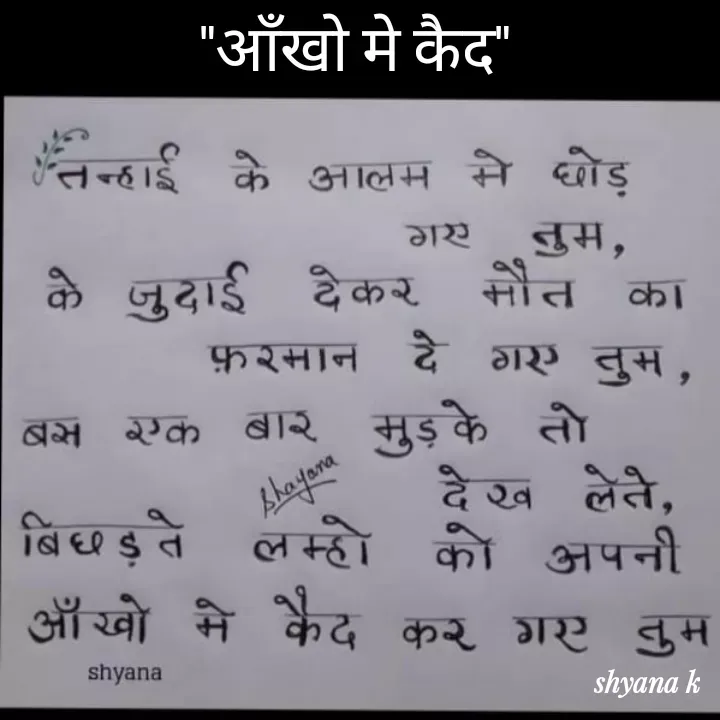 "आँखो मे कैद"
तन्हाई के आलम मे छोड़
गए तुम,
के जुदाई देकर मौत का
फ़रमान दे गए तुम,
बस एक बार मुड़के तो
देख लेते,
Shayana
बिछड़ते लम्हो को अपनी
आँखो मे कैद कर गए तुम
shyana
shyana k